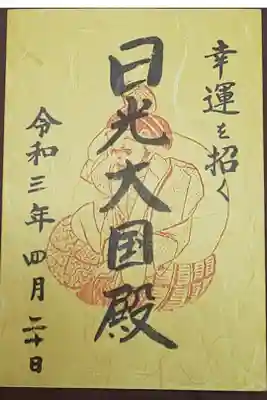 幸運を招く
日光大国殿
令和三年四月二十日